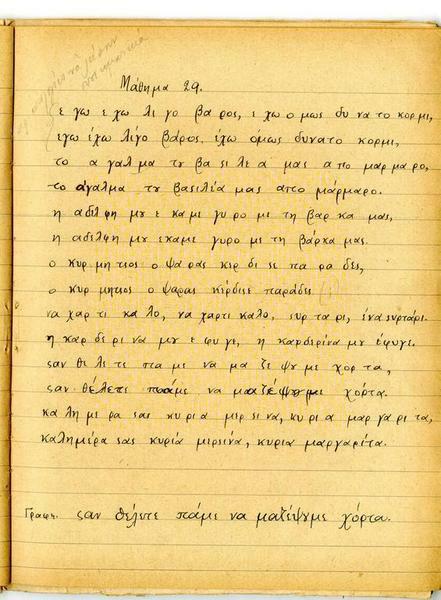 Μάθημα 29.
ε γω ε χω λι γο βα ρος, ε χω ο μως δυ να το κορ μι,
εγω έχω λίγο βάρος έχω όμως δυνατο κορμι,
το α γαλ μα τυ βα σι λε α μας απο μαρ μα ρο,
το άγαλμα τυ βασιλέα μας απο μάρμαρο.
η αδελ φη μυ ε κα με γυ ρο με τη βαρ κα μας,
η αδελφη μυ εκαμε γυρο με τη βάρκα μας.
ο κυρ μητιος ο ψα ρας κερ δι σε πα ρα δες,
ο κυρ μητιος ο ψαρας κέρδισε παράδες
να χαρ τι κα λο, να χαρτι καλο, συρ τα ρι, ένα συρτάρι.
η καρ δε ρι να μυ ε φυ γε, η καρδερίνα μυ έφυγε.
σαν θε λε τε πα με να μα ζε ψυ με χορ τα,
σαν θέλετε πάμε να μαζέψυμε χόρτα.
κα λη με ρα σας κυ ρι α μερ σι να, κυ ρι α μαρ γα ρι τα,
καλημέρα σας κυρία μερσίνα, κυρια μαργαρίτα.
Γραφη. σαν θέλετε πάμε να μαζέψυμε χόρτα.